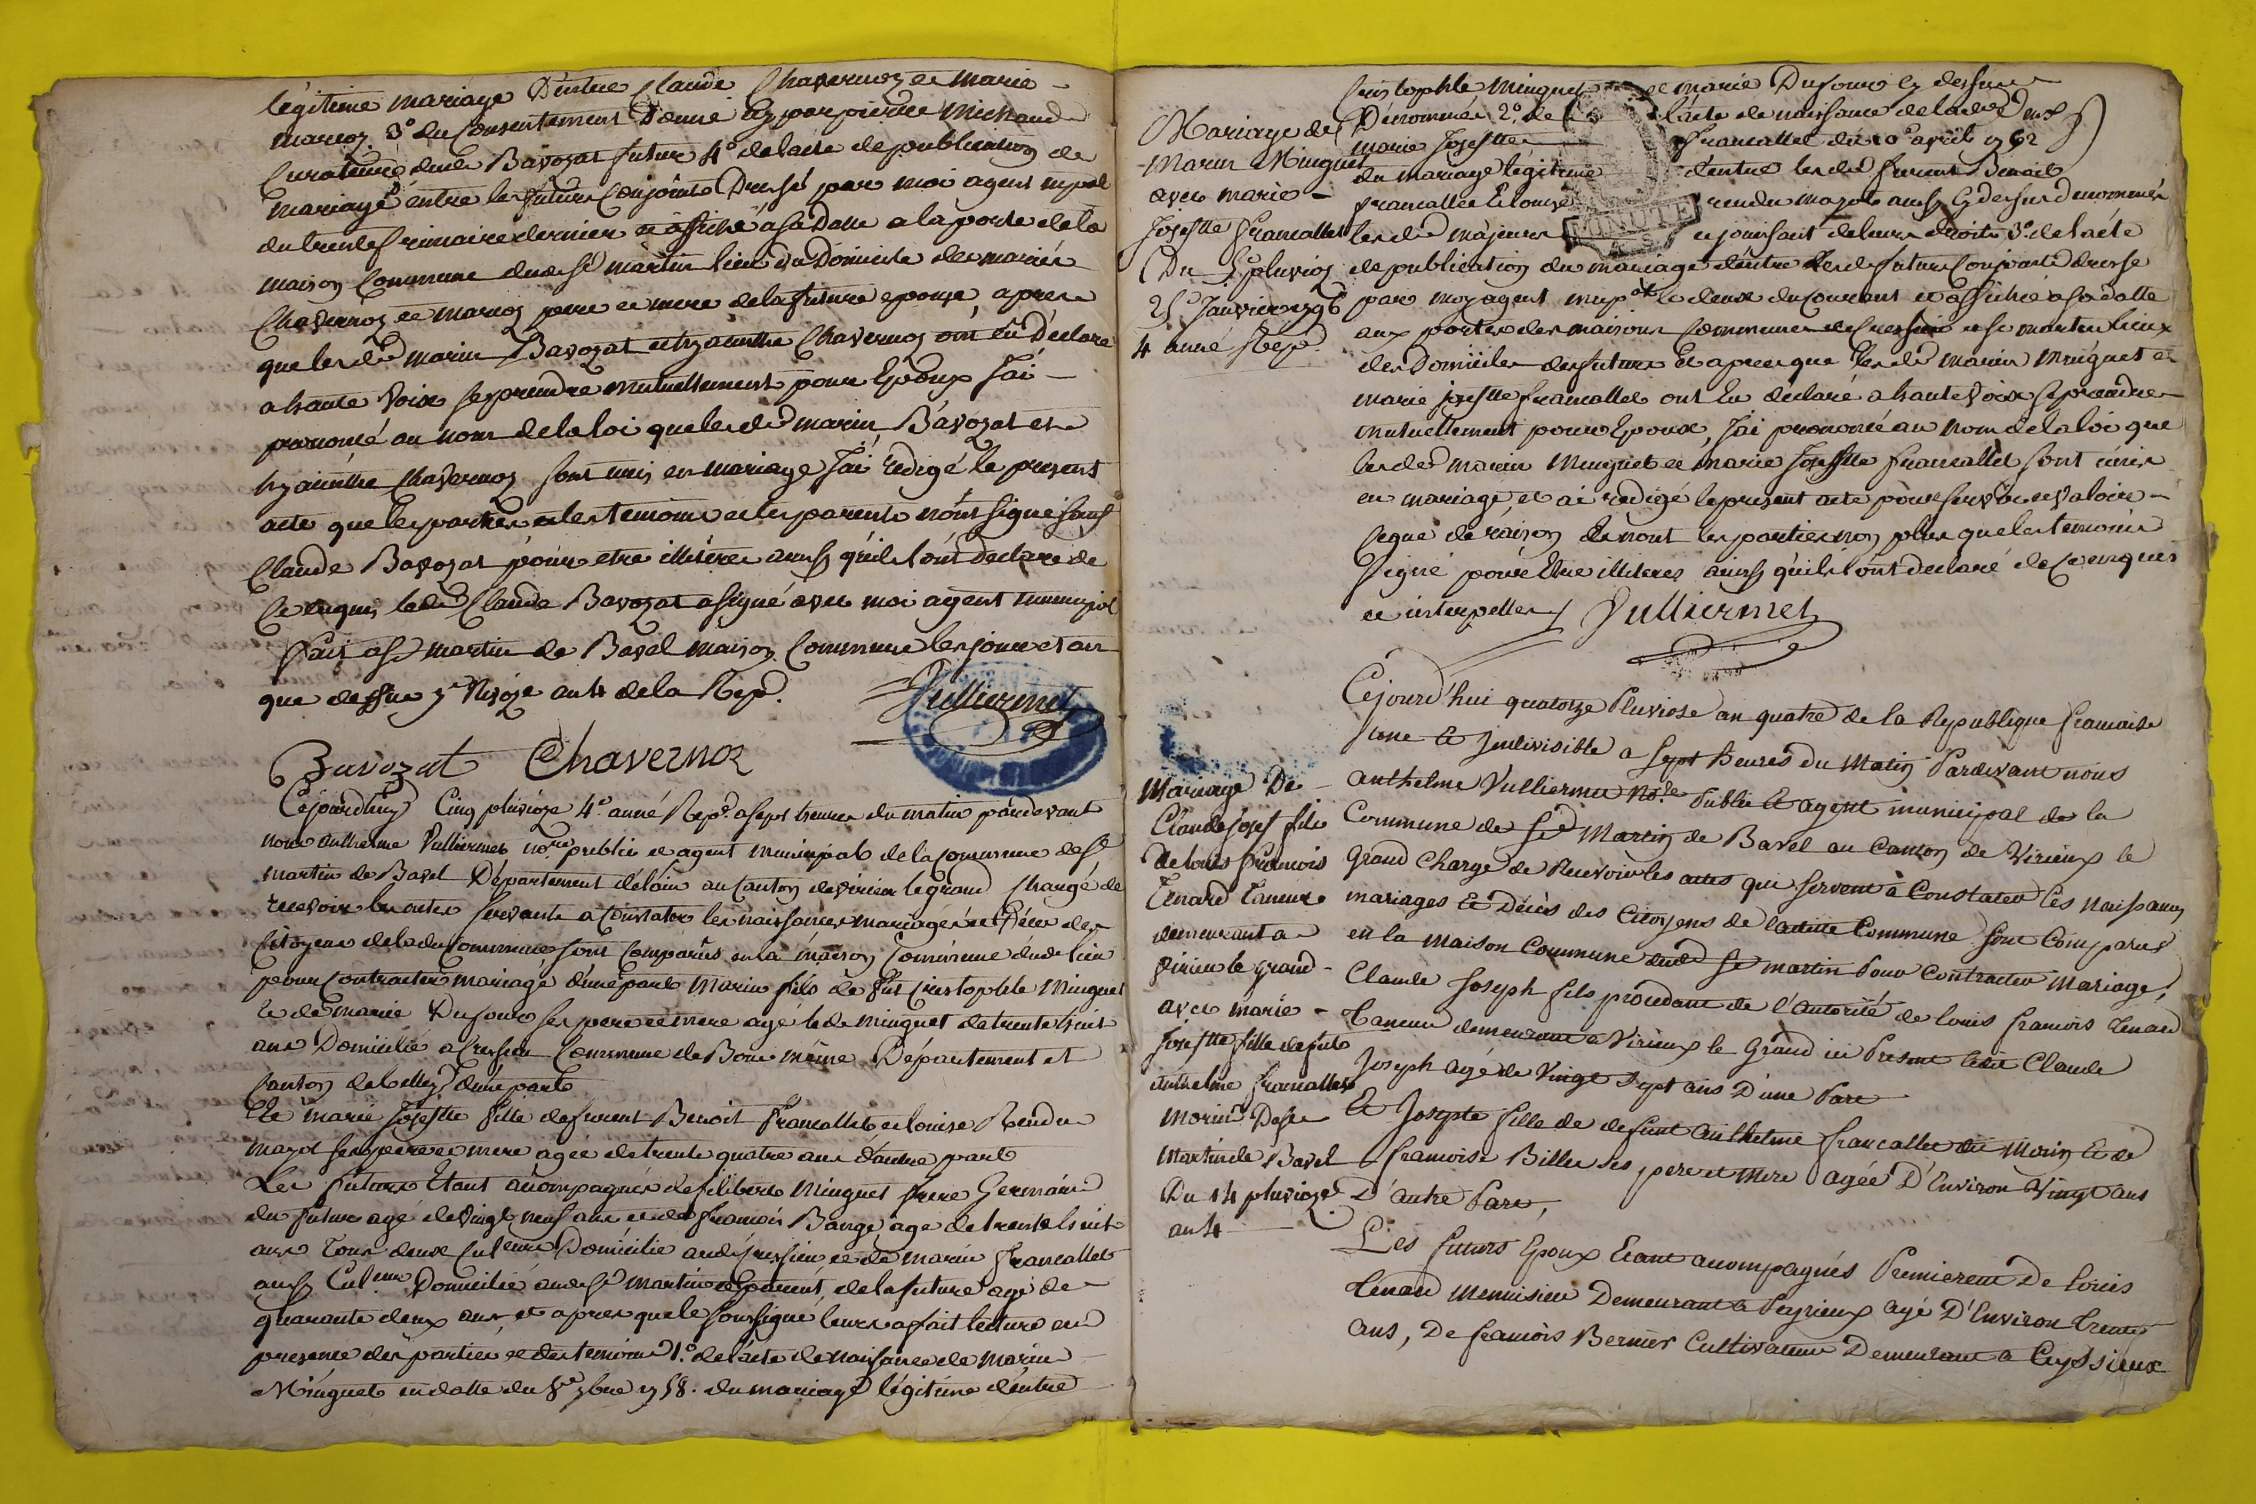 légitime mariage D'entre Claude Chavernoz et marie
marcoz 3° du Consentement Donné by par pierre michaud
Curateur dud Bavozat futur 4° de lacte de publication de
mariage entre les futurs Conjoints Dressé par moi agent mpal
du trente frimaire dernier et affiché asa Datte a la porte de la
maison Commune dud St martin lieu du Domicile des mariés
Chavernoz et marcoz pere et mere de la future epouse, apres
que lesdt marin Bavozat et hyacinthe Chavernoz ont eu Déclare
a haute Voix se prendre mutuellement pour Epoux J'ai
prononcé au nom de la loi que lesdt marin Bavozat et
hyacinthe Chavernoz sont unis en mariage J'ai redigé le present
acte que les parties et les temoins et les parents n'ont signé sauf
Claude Bavozat pour etre illiteres ainsy qu'ils l'ont Declare de
ce enquis ledt Claude Bavozat a signé avec moi agent municipal
Fait a St martin de Bavel maison Commune les jour et an
que dessus Nivôze an 4 de la Rep.
Vulliermet
Bavozat Chavernoz
Cejourdhuy Cinq pluvioze 4e anné Rep. a sept heures du matin pardevant
nous anthelme Vulliermet nore public et agent municipal de la Commune de St
martin de Bavel Département de l'ain au Canton de virieu le grand Chargé de
recevoir les actes servants a Constater les naissances mariages et Déces des
Citoyens de lad Commune sont Comparus en la maison Commune dud lieu
pour Contracter mariage d'une part Marin fils de fut Cristophle Minguet
et de marie Dufour ses pere et mere age led Minguet de trente huit
ans Domicilié a Cressieu Commune de Bons même Département et
Canton de belley d'une part
Et marie Josephte fille de furent Benoit Francallet et louise Rendu
mazot ses pere et mere agée de trente quatre ans d'autre part
Les futurs Etant acompagnés de filibert Minguet frere Germain
du futur agé de vingt neuf ans et de françois Bange, age de trente huit
ans Tous deux Culteurs Domicilié aud Cressieu et de marin francallet
aussy Culteur Domicilié aud St martin et parent, de la future agé de
quarante deux ans, et apres que le soussigné leurs a fait lecture en
presence des parties et des temoins 1.° de l'acte de naissance de marin
Minguet en datte du 8e 7bre 1758. du mariage légitime d'entre
Mariage de
Marin Minguet
avec marie
Josephte francallet
Du 5e pluvioz
25e Janvier 1796
4 anné Rep.
Cristophle minguet et marie Dufour cy dessus
Dénommés 2.° de l'acte de naissance de lad
marie Josephte francallet du 10 avril 1762
du mariage légitime d'entre lesdt furent Benoit
francallet Et louise rendu mazot aussy cy dessus denommés
MINUTE
lesdt majeurs et jouissant de leurs droits 3.° de l'acte
de publication du mariage d'entre lesd futurs Conjoints dressé
par moy agent mupal le deux du Courant et affiché a sa datte
aux portes des maisons Communes de Cressieu et St martin lieux
des Domiciles des futurs Et apres que lesdt marin Minguet et
marie josephte francallet ont Eu déclaré a haute Voix se prendre
mutuellement pour Epoux, J'ai prononcé au nom de la loi que
lesdt marin Minguet et marie Josephte francallet sont unis
en mariage, et ai redigé le present acte pour servir et valoir
ceque de raison Et n'ont les parties non plus que les temoins
Signé pour Etre illiteres ainsy qu'ils l'ont declaré de ce enquis
et interpellés Vulliermet
Mariage De
Claude Josef fils
de louis francois
Tenard Taneur
demeurant a
Virieu le grand
avec marie
Josephte fille de fut
anthelme francallet
morin De St
Martin de Bavel
Du 14 pluvioze
an 4
Cejourd'hui quatorze Pluviose an quatre de la Republique francaise
une Et Indivisible a sept heures du Matin Pardevant nous
anthelme Vulliermet Nore Public Et agent municipal de la
Commune de St Martin de Bavel au Canton de Virieux le
Grand Chargé de Recevoir les actes qui servent à Constater les Naissances
mariages Et Décès des Citoyens de laditte Commune sont Comparus
en la maison Commune dud St martin Pour Contracter Mariage,
Claude Joseph fils procedant de l'autorité de louis francois Tenard
Taneur demeurant a Virieux le Grand ici Present ledit Claude
Joseph agé de Vingt sept ans D'une Part
Et Josepte fille de defunt anthelme francallet dit Morin Et de
francoise Billet ses pere et Mere agée D'Environ Vingt ans
D'autre Part,
Les futurs Epoux Etant acompagnés Premierement De louis
Tenard Menuisier Demeurant a Peyrieux agé D'Environ trente
ans, De francois Bernier Cultivateur Demeurant a Ceyssieux